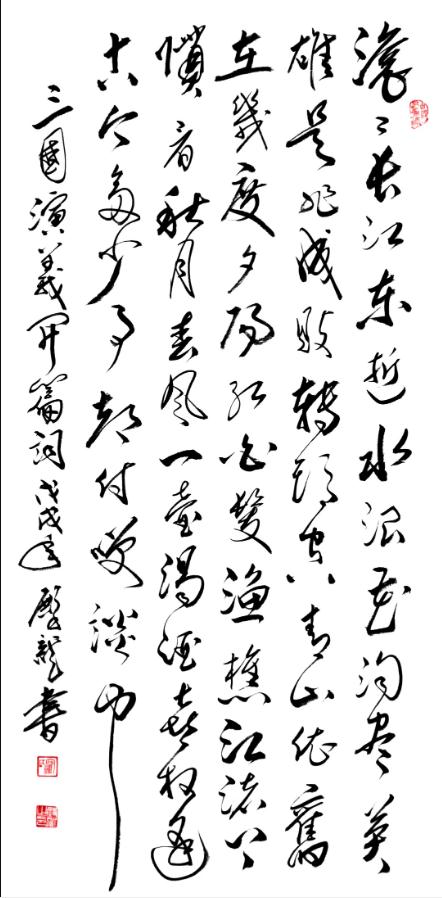 滚〻长江东逝水浪花淘尽英
雄是非成败轉頭空青山依舊
在幾度夕陽红白髮渔樵江渚上
慣看秋月春风一壶濁酒喜相逢
古今多少事都付笑談中
三國演義开篇词戊戌年龍書